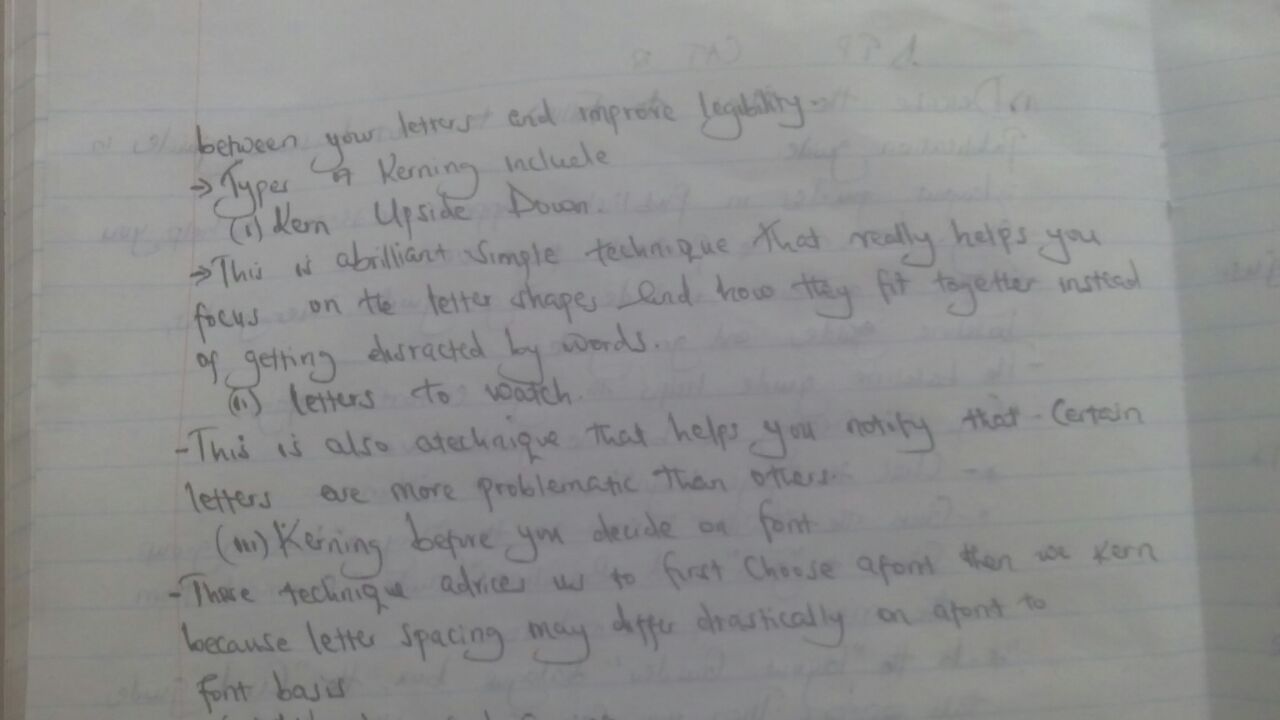 between your letters and improve legibility.
→ Types of Kerning include
(i) Kern Upside Down.
→ This is abrilliant simple technique that really helps you
focus on the letter shapes and how they fit together instead
of getting disracted by words.
(ii) letters to watch.
- This is also atechnique that helps you notify that - Certain
letters are more problematic than others.
(iii) Kerning before you decide on font
- These technique advices us to first Choose afont then we Kern
because letter spacing may differ drastically on afont to
font basis